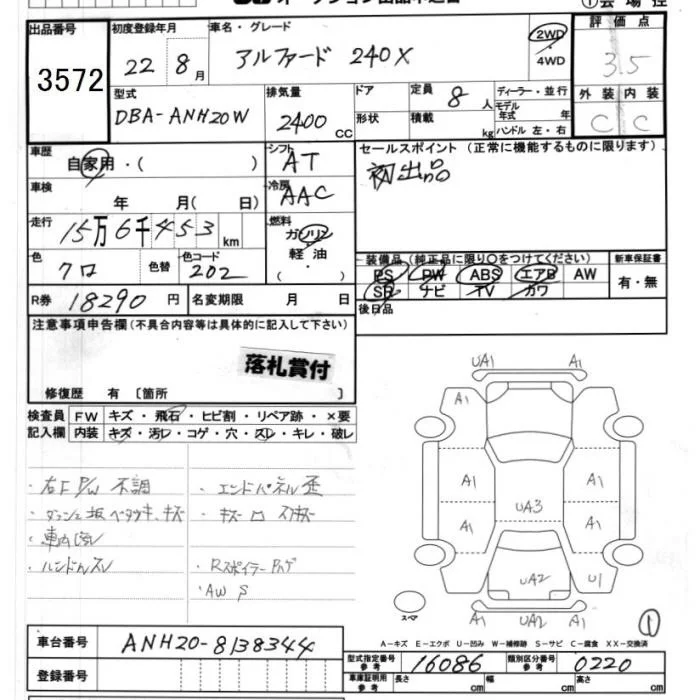 ①会場控
出品番号 初度登録年月 車名・グレード 評価点
3572 22年 8月 アルファード 240X 2WD・4WD 3.5
型式 排気量 ドア 定員 ディーラー・並行 外装 内装
DBA-ANH20W 2400cc 形状 積載 8人 kg モデル年式 年 ハンドル 左・右 C C
車歴 シフト セールスポイント (正常に機能するものに限ります)
自家用・( ) AT 初出品
車検 年 月( 日) 冷房 AAC
走行 15万6千453km 燃料 ガソリン・軽油
装備品 (純正品に限り○をつけてください) 新車保証書
色 クロ 色替 色コード 202 PS PW ABS エアB AW 有・無
SR ナビ TV カワ
R券 18290円 名変期限 月 日 後日品
注意事項申告欄 (不具合内容等は具体的に記入して下さい)
落札賞付
修復歴 有 〔箇所 〕
検査員 FW キズ・飛石・ヒビ割・リペア跡・×要
記入欄 内装 キズ・汚レ・コゲ・穴・スレ・キレ・破レ
・右F P/W 不調 ・エンドパネル歪
・ダッシュ板 ベタツキ、キズ
・車内汚レ
・ハンドルスレ ・Rスポイラー ハゲ
・AW S
UA1 A1
A1
A1 A1
UA3
A1 A1
UA2 U1
A1 UA2 A1
スペア
①
A-キズ E-エクボ U-凹み W-補修跡 S-サビ C-腐食 XX-交換済
車台番号 ANH20-8138344
型式指定番号 参考 16086 類別区分番号 参考 0220
登録番号 車庫証明用 参考 長さ cm 幅 cm 高さ cm